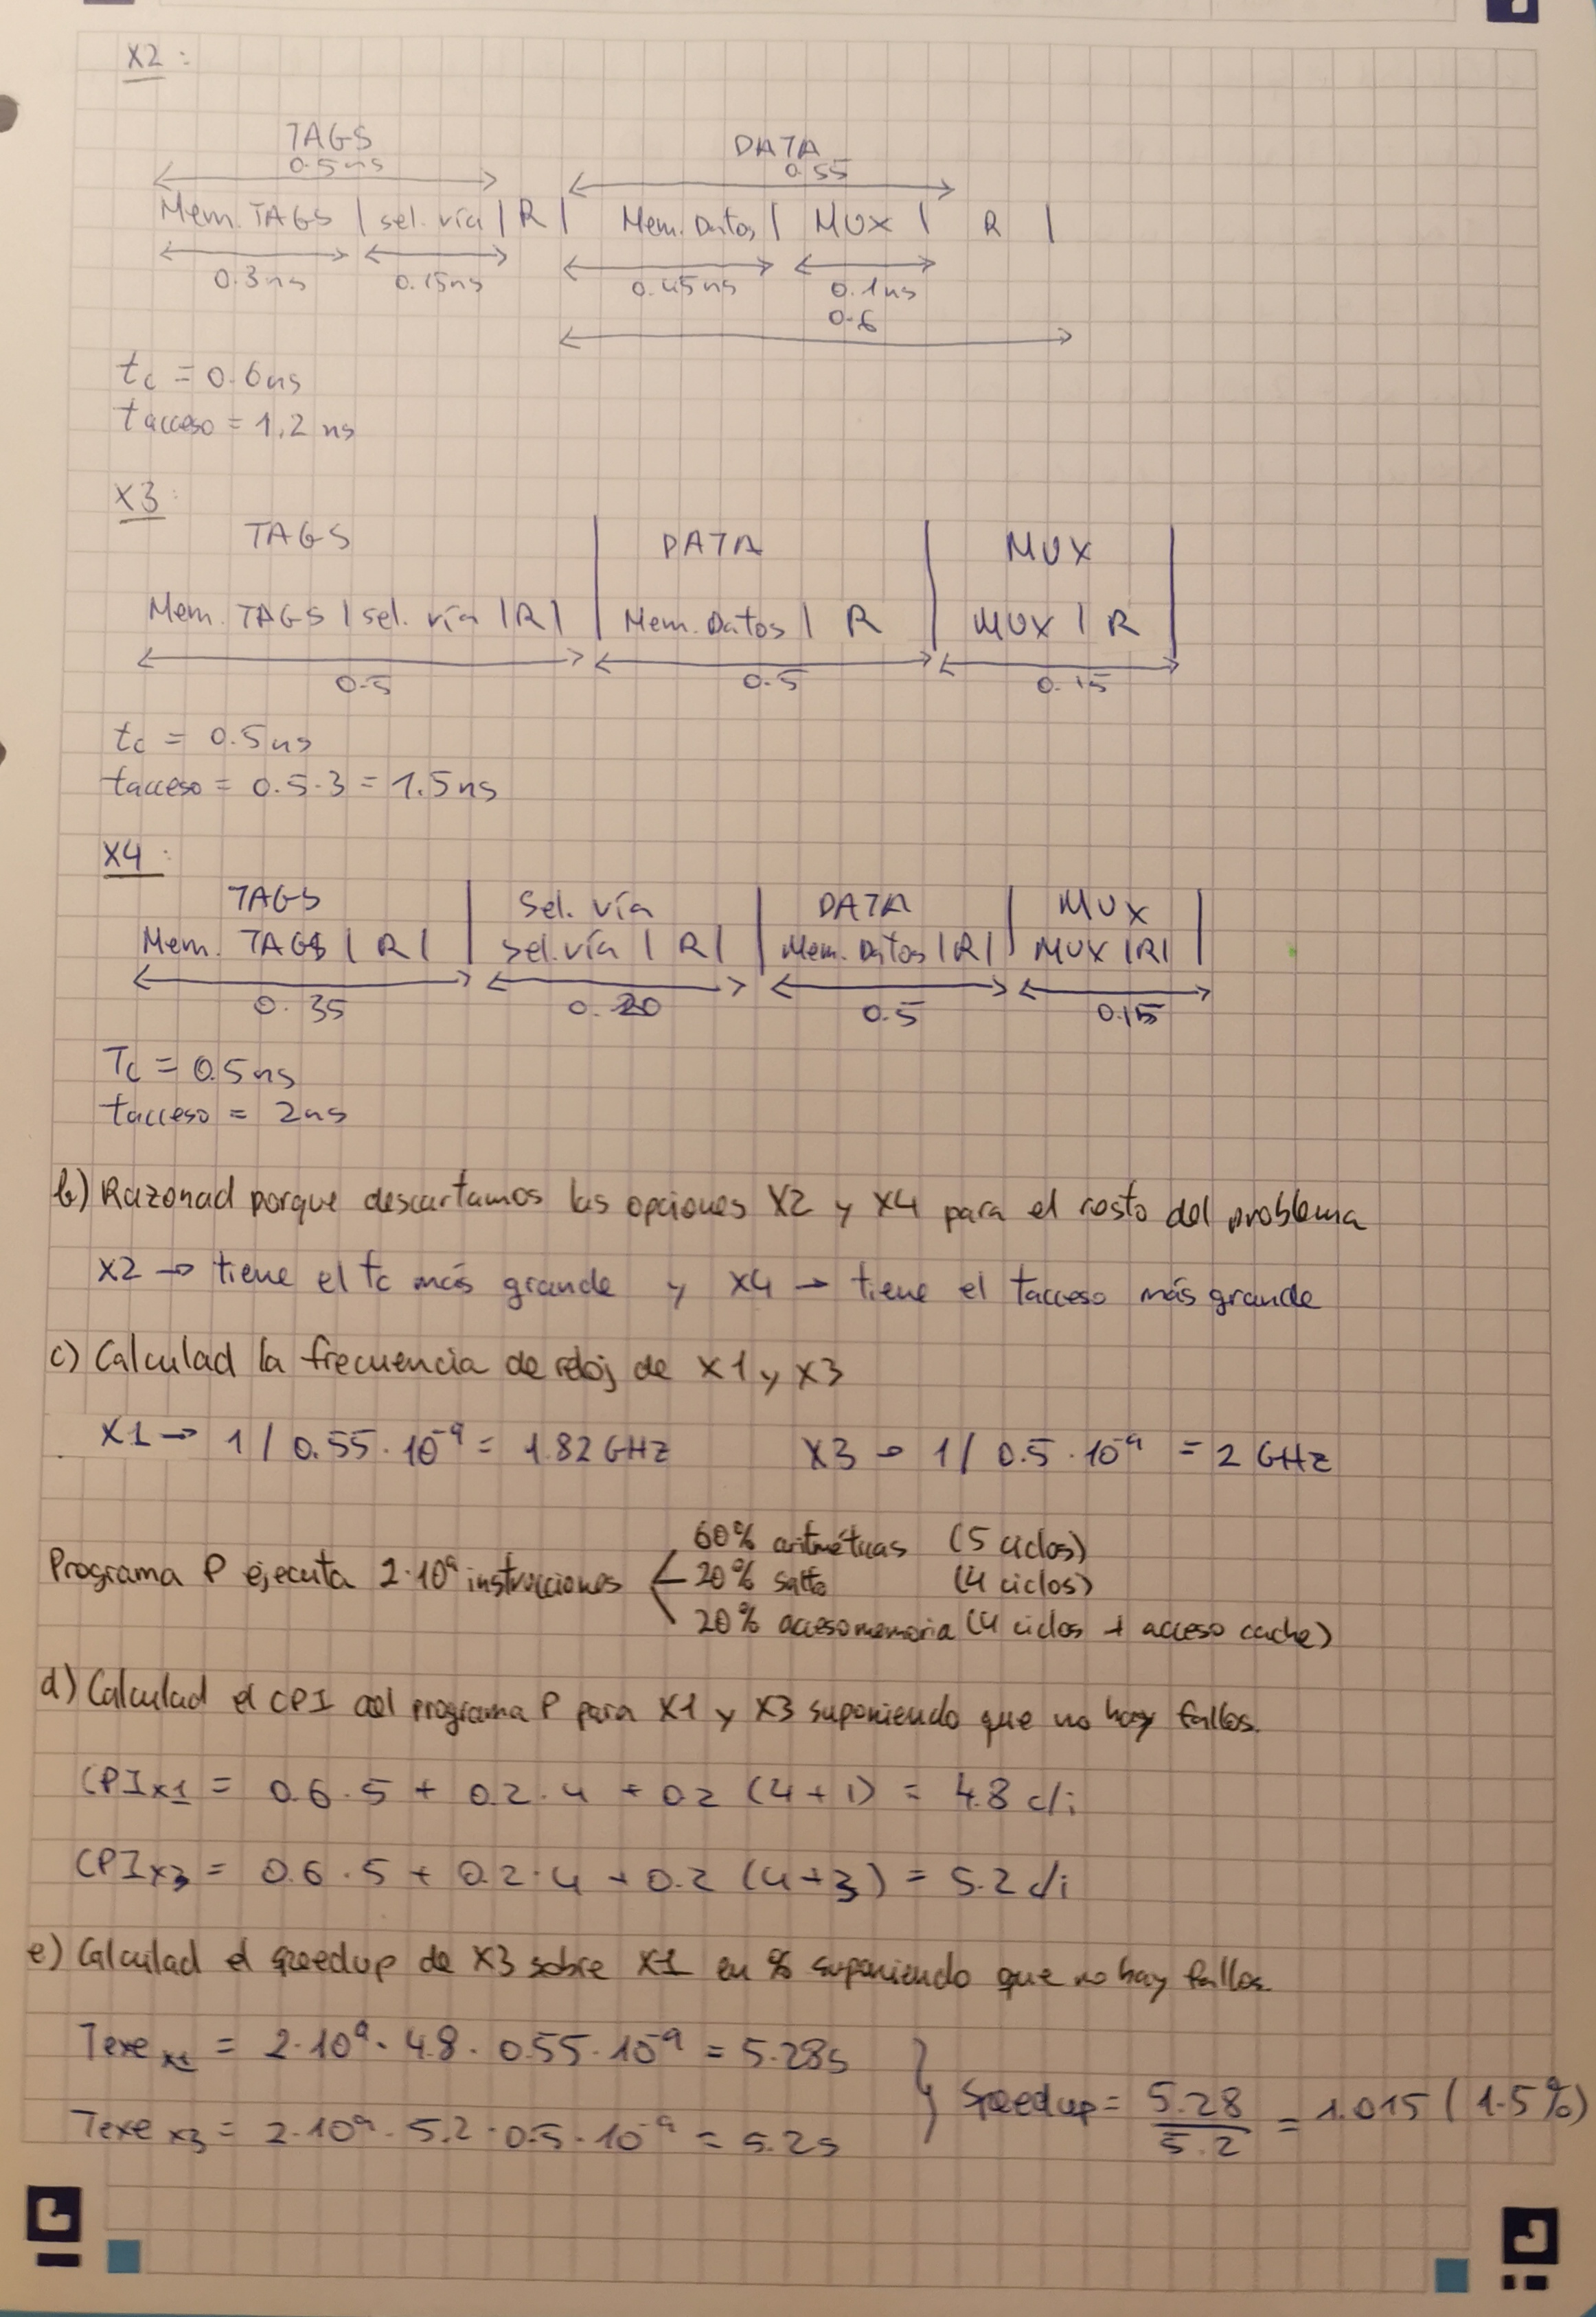 X2 :
TAGS
DATA
0.5ns
0.55
Mem. TAGS | sel. vía | R | Mem. Datos | MUX | R |
0.3ns 0.15ns 0.45ns 0.1ns
0.6
tc = 0.6ns
tacceso = 1,2 ns
X3 :
TAGS DATA MUX
Mem. TAGS | sel. vía | R | Mem. Datos | R MUX | R
0.5 0.5 0.15
tc = 0.5ns
tacceso = 0.5·3 = 1.5ns
X4 :
TAGS Sel. vía DATA MUX
Mem. TAGS | R | sel. vía | R | Mem. Datos | R | MUX | R |
0.35 0.20 0.5 0.15
Tc = 0.5ns
tacceso = 2ns
b) Razonad porque descartamos las opciones X2 y X4 para el resto del problema
X2 → tiene el tc más grande y X4 → tiene el tacceso más grande
c) Calculad la frecuencia de reloj de X1 y X3
X1 → 1 / 0.55 · 10⁻⁹ = 1.82 GHz X3 → 1 / 0.5 · 10⁻⁹ = 2 GHz
60% aritméticas (5 ciclos)
Programa P ejecuta 2·10⁹ instrucciones 20% salto (4 ciclos)
20% acceso memoria (4 ciclos + acceso cache)
d) Calculad el CPI del programa P para X1 y X3 suponiendo que no hay fallos.
CPIx1 = 0.6 · 5 + 0.2 · 4 + 0.2 (4+1) = 4.8 c/i
CPIx3 = 0.6 · 5 + 0.2 · 4 + 0.2 (4+3) = 5.2 c/i
e) Calculad el speedup de X3 sobre X1 en % suponiendo que no hay fallos.
Texe x1 = 2·10⁹ · 4.8 · 0.55 · 10⁻⁹ = 5.28s
Speedup = 5.28 / 5.2 = 1.015 (1.5%)
Texe x3 = 2·10⁹ · 5.2 · 0.5 · 10⁻⁹ = 5.2s